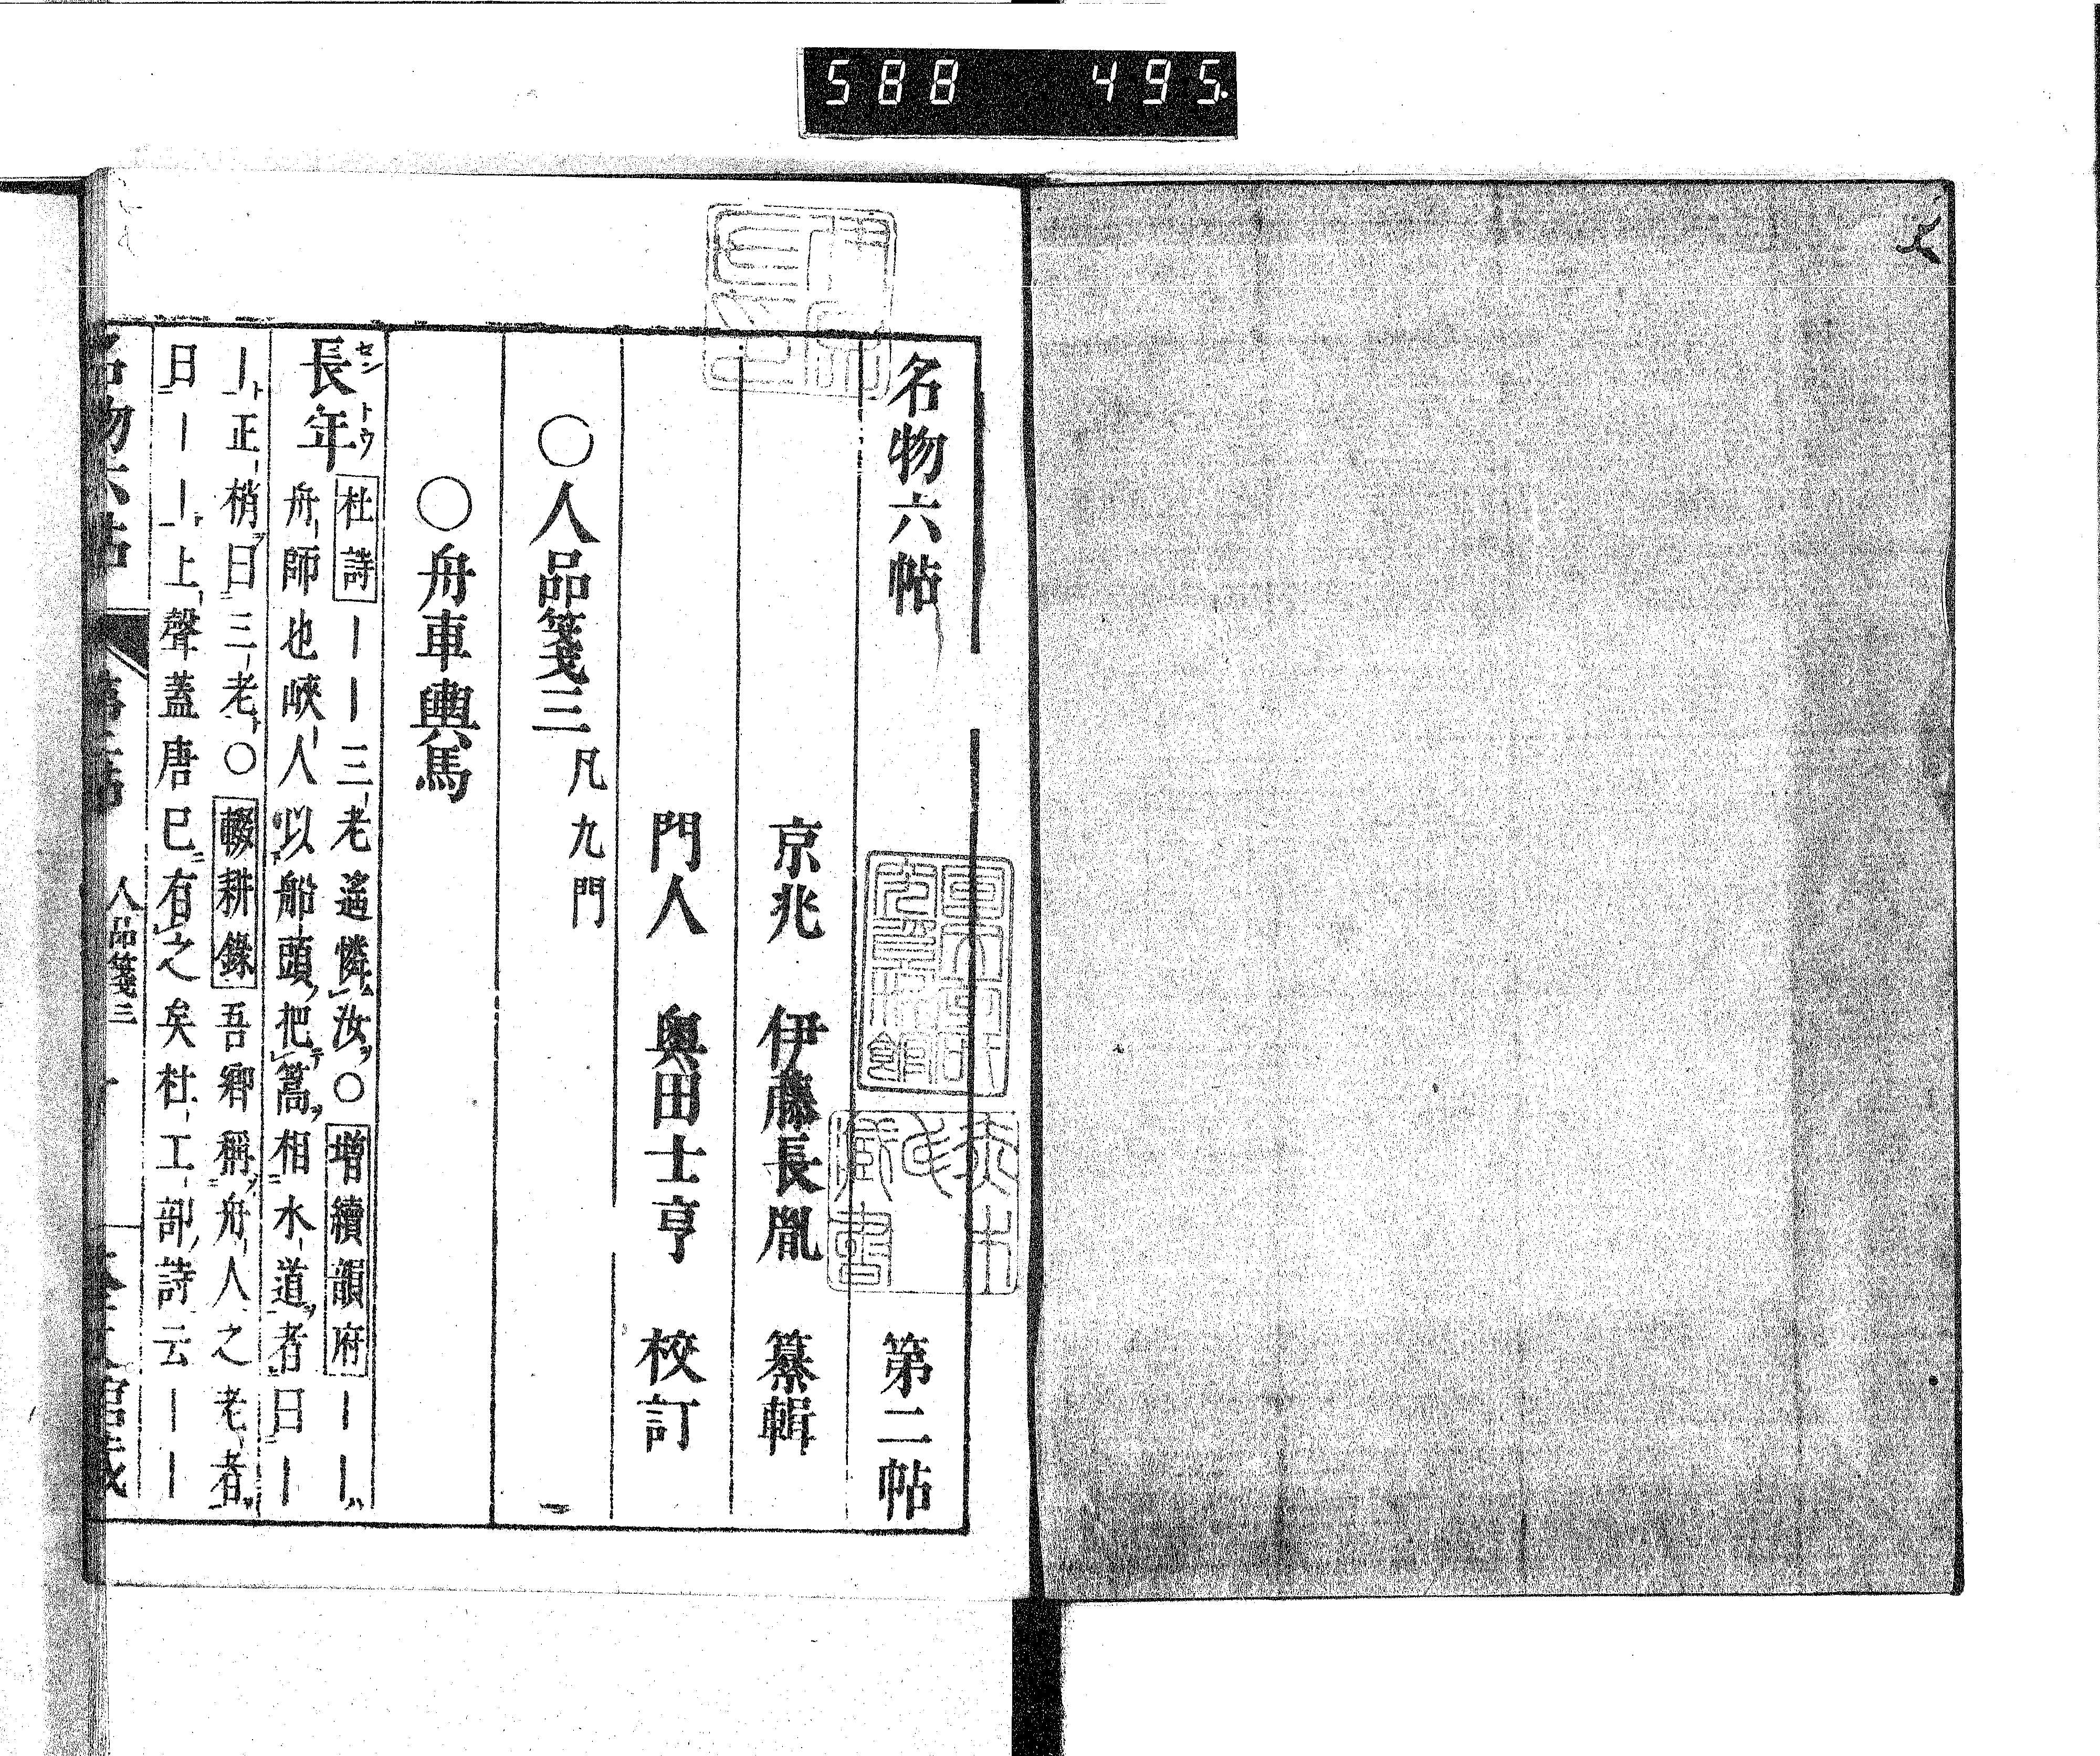 588 495.
名物六帖 第二帖
京兆 伊藤長胤 纂輯
門人 奥田士亨 校訂
○人品箋三 凡九門
○舟車輿馬
長年 セントウ
杜詩｜｜三老遙憐汝○增續韻府｜｜
舟師也峽人以船頭把篙相水道者曰｜
｜正梢曰三老○輟耕錄吾鄉稱舟人之老者
曰｜｜上聲蓋唐已有之矣杜工部詩云｜｜
名物六帖 人品箋三